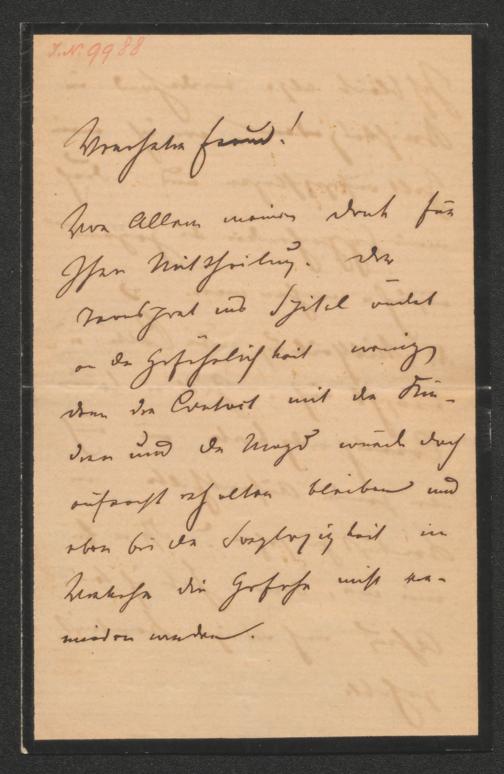 I.N. 9988
Verehrter Freund!
Vor Allem meinen Dank für
Ihre Mittheilung. Der
Transport ins Spital ändert
an der Gefährlichkeit wenig,
denn der Contact mit den Kin-
dern und der Magd würde doch
aufrecht erhalten bleiben und
eben bei der Sorglosigkeit im
Verkehr die Gefahr nicht ver-
mieden werden.